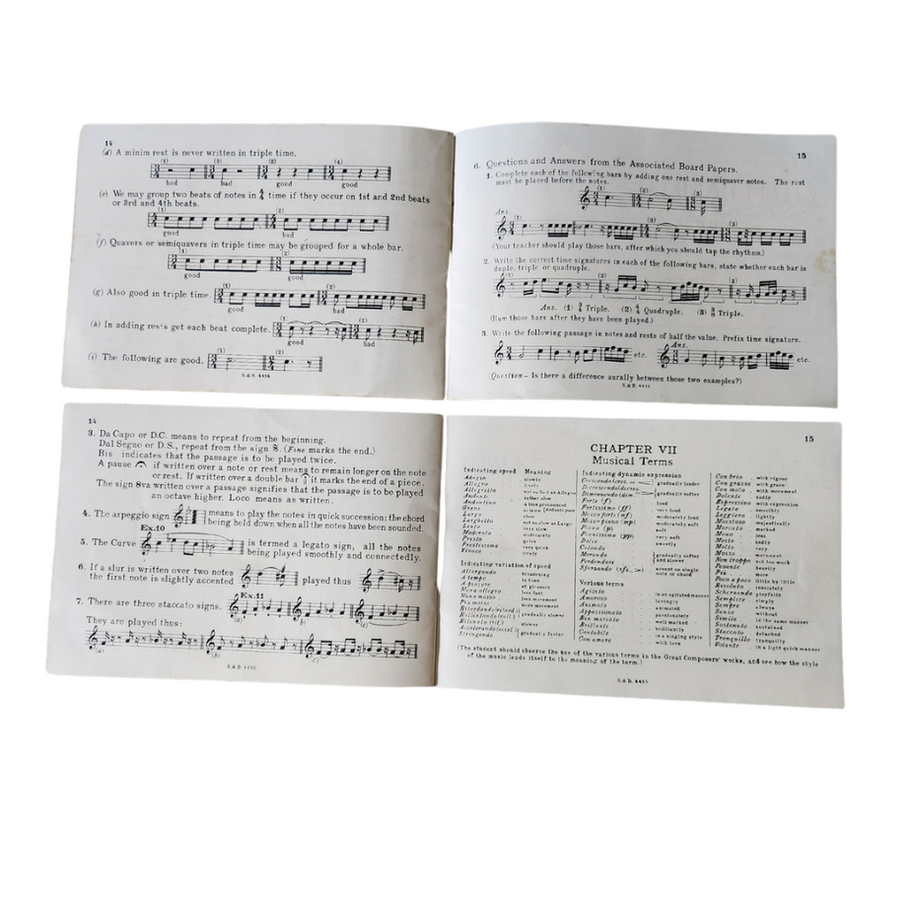 14
(d) A minim rest is never written in triple time.
(1) (2) (3) (4)
bad bad good good
(e) We may group two beats of notes in 4/4 time if they occur on 1st and 2nd beats
or 3rd and 4th beats.
(1) (2)
good bad
(f) Quavers or semiquavers in triple time may be grouped for a whole bar.
(1) (2)
good good
(g) Also good in triple time.
(1) (2)
good bad
(h) In adding rests get each beat complete.
(1) (2)
good bad
(i) The following are good.
(1) (2)
S.& B. 4414
15
6. Questions and Answers from the Associated Board Papers.
1. Complete each of the following bars by adding one rest and semiquaver notes. The rest
must be placed before the notes.
(1) (2) (3)
Ans.
(1) (2) (3)
(Your teacher should play those bars, after which you should tap the rhythm.)
2. Write the correct time signatures in each of the following bars, state whether each bar is
duple, triple or quadruple.
(1) (2) (3)
Ans. (1) Triple. (2) Quadruple. (3) Triple.
(Hum those bars after they have been played.)
3. Write the following passage in notes and rests of half the value. Prefix time signature.
etc. Ans. etc.
(Question – Is there a difference aurally between those two examples?)
S.& B. 4414
14
3. Da Capo or D.C. means to repeat from the beginning.
Dal Segno or D.S., repeat from the sign 𝄋. (Fine marks the end.)
Bis indicates that the passage is to be played twice.
A pause 𝄐 if written over a note or rest means to remain longer on the note
or rest. If written over a double bar it marks the end of a piece.
The sign 8va written over a passage signifies that the passage is to be played
an octave higher. Loco means as written.
4. The arpeggio sign means to play the notes in quick succession: the chord
being held down when all the notes have been sounded.
Ex.10
5. The Curve is termed a legato sign, all the notes
being played smoothly and connectedly.
6. If a slur is written over two notes
the first note is slightly accented played thus
Ex.11
7. There are three staccato signs.
(a) (b) (c)
They are played thus:
(a) (b) (c)
S.& B. 4415
15
CHAPTER VII
Musical Terms
Indicating speed Meaning
Adagio slowly
Allegro lively
Allegretto not so fast as Allegro
Andante rather slow
Andantino
Grave
Largo slow
Larghetto not so slow as Largo
Lento very slow
Moderato moderately
Presto quick
Prestissimo very quick
Vivace lively
Indicating variation of speed
Allargando broadening
A tempo in time
A piacere at pleasure
Meno allegro less fast
Meno mosso less movement
Piu mosso more movement
Ritardando (ritard.)
Rallentando (rall.) gradually slower
Ritenuto (rit.) slower
Accelerando (accel.)
Stringendo gradually faster
Indicating dynamic expression
Crescendo (cres. or gradually louder
Decrescendo (decres.
Diminuendo (dim. gradually softer
Forte (f) loud
Fortissimo (ff) very loud
Mezzo forte (mf) moderately loud
Mezzo piano (mp) moderately soft
Piano (p) soft
Pianissimo (pp) very soft
Dolce sweetly
Calando
Morendo gradually softer
Perdendosi and slower
Sforzando (sfz. accent on single
note or chord
Various terms
Agitato in an agitated manner
Amoroso lovingly
Animato animated
Appassionato passionately
Ben marcato well marked
Brillante brilliantly
Cantabile in a singing style
Con amore with love
Con brio with vigour
Con grazia with grace
Con moto with movement
Dolente sadly
Espressivo with expression
Legato smoothly
Leggiero lightly
Maestoso majestically
Marcato marked
Meno less
Mesto sadly
Molto very
Mosso movement
Non troppo not too much
Pesante heavily
Più more
Poco a poco little by little
Risoluto resolutely
Scherzando playfully
Semplice simply
Sempre always
Senza without
Simile in the same manner
Sostenuto sustained
Staccato detached
Tranquillo tranquilly
Volante in a light quick manner
(The student should observe the use of the various terms in the Great Composers' works, and see how the style
of the music lends itself to the meaning of the term.)
S.& B. 4415